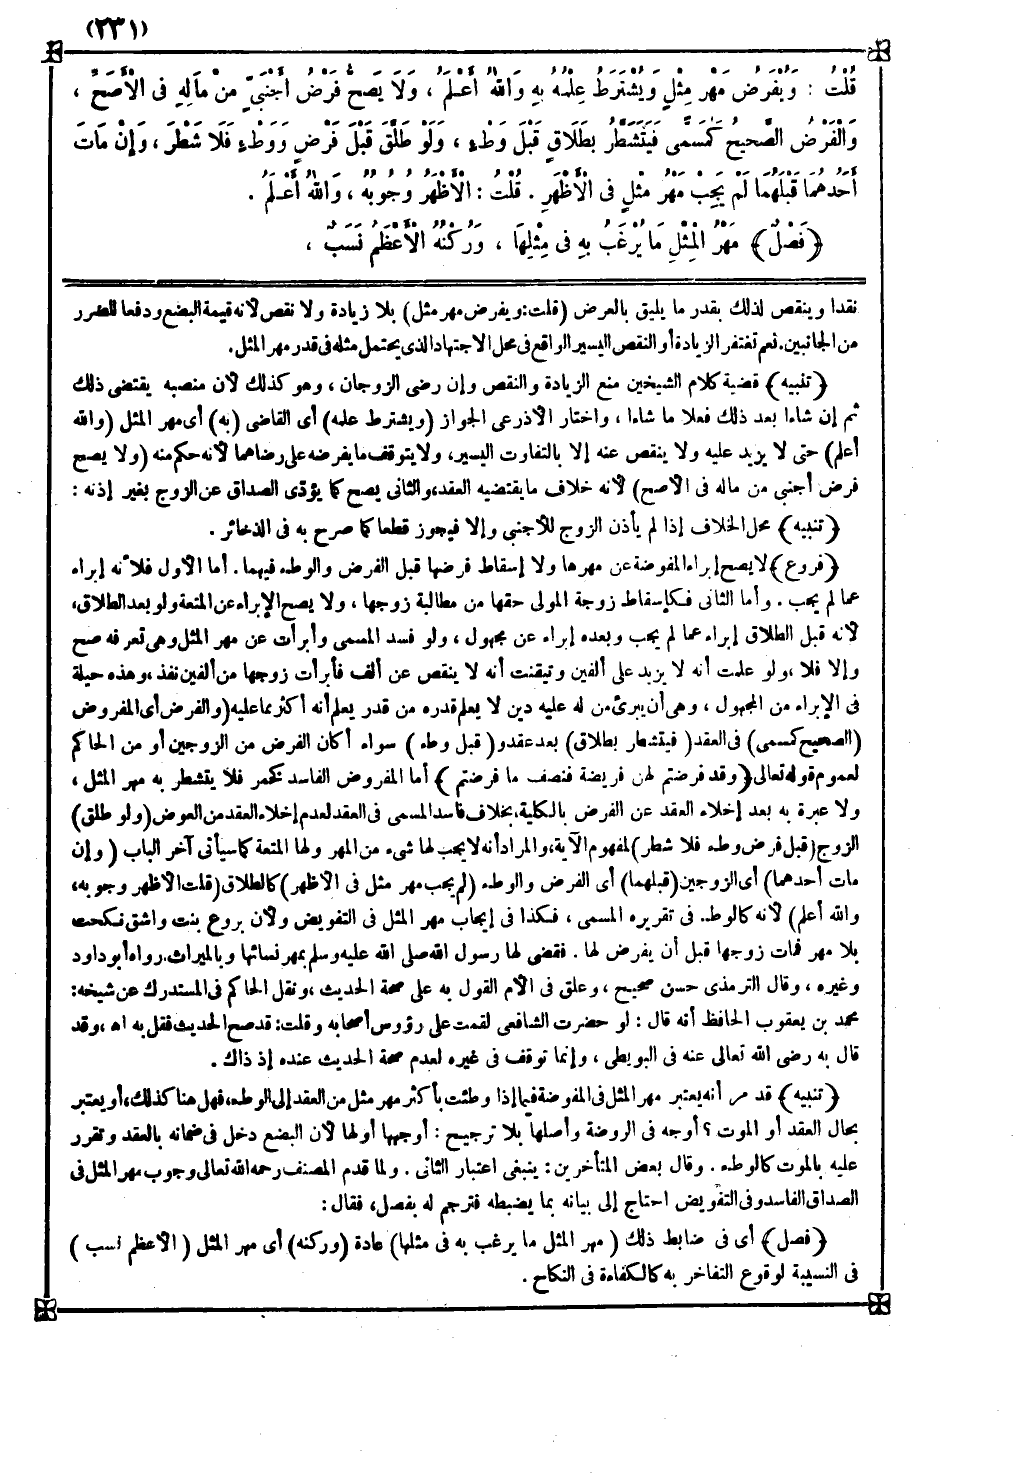 (٢٣١)
قُلْتُ : وَيُفْرَضُ مَهْرُ مِثْلٍ وَيُشْتَرَطُ عِلْمُهُ بِهِ وَاللهُ أَعْلَمُ ، وَلَا يَصِحُّ فَرْضُ أَجْنَبِيٍّ مِنْ مَالِهِ فِى الْأَصَحِّ ،
وَالْفَرْضُ الصَّحِيحُ كَمُسَمًّى فَيَتَشَطَّرُ بِطَلَاقٍ قَبْلَ وَطْءٍ ، وَلَوْ طَلَّقَ قَبْلَ فَرْضٍ وَوَطْءٍ فَلَا شَطْرَ ، وَإِنْ مَاتَ
أَحَدُهُمَا قَبْلَهُمَا لَمْ يَجِبْ مَهْرُ مِثْلٍ فِى الْأَظْهَرِ . قُلْتُ : الْأَظْهَرُ وُجُوبُهُ ، وَاللهُ أَعْلَمُ .
﴿ فَصْلٌ ﴾ مَهْرُ الْمِثْلِ مَا يُرْغَبُ بِهِ فِى مِثْلِهَا ، وَرُكْنُهُ الْأَعْظَمُ نَسَبٌ ،
نقدا وينقص لذلك بقدر ما يليق بالعرض (قلت: ويفرض مهر مثل) بلا زيادة ولا نقص لأنه قيمة البضع ودفعا للضرر
من الجانبين. نعم تغتفر الزيادة أو النقص اليسير الواقع فى محل الاجتهاد الذى يحتمل مثله فى قدر مهر المثل.
﴿ تنبيه ﴾ قضية كلام الشيخين منع الزيادة والنقص وإن رضى الزوجان ، وهو كذلك لأن منصبه يقتضى ذلك
ثم إن شاءا بعد ذلك فعلا ما شاءا ، واختار الأذرعى الجواز (ويشترط علمه) أى القاضى (به) أى مهر المثل (والله
أعلم) حتى لا يزيد عليه ولا ينقص عنه إلا بالتفاوت اليسير، ولا يتوقف ما يفرضه على رضاهما لأنه حكم منه (ولا يصح
فرض أجنبى من ماله فى الأصح) لأنه خلاف ما يقتضيه العقد، والثانى يصح كما يؤدى الصداق عن الزوج بغير إذنه :
﴿ تنبيه ﴾ محل الخلاف إذا لم يأذن الزوج للأجنبى وإلا فيجوز قطعا كما صرح به فى الذخائر .
﴿ فروع ﴾ لا يصح إبراء المفوضة عن مهرها ولا إسقاط فرضها قبل الفرض والوطء فيهما. أما الأول فلأنه إبراء
عما لم يجب . وأما الثانى فكإسقاط زوجة المولى حقها من مطالبة زوجها ، ولا يصح الإبراء عن المتعة ولو بعد الطلاق،
لأنه قبل الطلاق إبراء عما لم يجب وبعده إبراء عن مجهول ، ولو فسد المسمى وأبرأت عن مهر المثل وهى تعرفه صح
وإلا فلا ، ولو علمت أنه لا يزيد على ألفين وتيقنت أنه لا ينقص عن ألف فأبرأت زوجها من ألفين نفذ، وهذه حيلة
فى الإبراء من المجهول ، وهى أن يبرئ من له عليه دين لا يعلم قدره من قدر يعلم أنه أكثر مما عليه (والفرض أى المفروض
(الصحيح كمسمى) فى العقد (فيتشطر بطلاق) بعد عقد و(قبل وطء) سواء أكان الفرض من الزوجين أو من الحاكم
لعموم قوله تعالى ﴿ وقد فرضتم لهن فريضة فنصف ما فرضتم ﴾ أما المفروض الفاسد كخمر فلا يتشطر به مهر المثل ،
ولا عبرة به بعد إخلاء العقد عن الفرض بالكلية، بخلاف فاسد المسمى فى العقد لعدم إخلاء العقد من العوض (ولو طلق)
الزوج (قبل فرض وطء فلا شطر) لمفهوم الآية، والمراد أنه لا يجب لها شىء من المهر ولها المتعة كما سيأتى آخر الباب (وإن
مات أحدهما) أى الزوجين (قبلهما) أى الفرض والوطء (لم يجب مهر مثل فى الأظهر) كالطلاق (قلت الأظهر وجوبه،
والله أعلم) لأنه كالوطء فى تقريره المسمى ، فكذا فى إيجاب مهر المثل فى التفويض ولأن بروع بنت واشق نكحت
بلا مهر فمات زوجها قبل أن يفرض لها . فقضى لها رسول الله صلى الله عليه وسلم بمهر نسائها وبالميراث. رواه أبو داود
وغيره ، وقال الترمذى حسن صحيح ، وعلق فى الأم القول به على صحة الحديث ، ونقل الحاكم فى المستدرك عن شيخه:
محمد بن يعقوب الحافظ أنه قال : لو حضرت الشافعى لقمت على رؤوس أصحابه وقلت: قد صح الحديث فقل به اه ، وقد
قال به رضى الله تعالى عنه فى البويطى ، وإنما توقف فى غيره لعدم صحة الحديث عنده إذ ذاك .
﴿ تنبيه ﴾ قد مر أنه يعتبر مهر المثل فى المفوضة فيما إذا وطئت بأكثر مهر مثل من العقد إلى الوطء، فهل هنا كذلك، أو يعتبر
بحال العقد أو الموت ؟ أوجه فى الروضة وأصلها بلا ترجيح : أوجهها أولها لأن البضع دخل فى ضمانه بالعقد وتقرر
عليه بالموت كالوطء . وقال بعض المتأخرين : ينبغى اعتبار الثانى . ولما قدم المصنف رحمه الله تعالى وجوب مهر المثل فى
الصداق الفاسد وفى التفويض احتاج إلى بيانه بما يضبطه فترجم له بفصل، فقال :
﴿ فصل ﴾ أى فى ضابط ذلك (مهر المثل ما يرغب به فى مثلها) عادة (وركنه) أى مهر المثل (الأعظم نسب)
فى النسيبة لوقوع التفاخر به كالكفاءة فى النكاح .